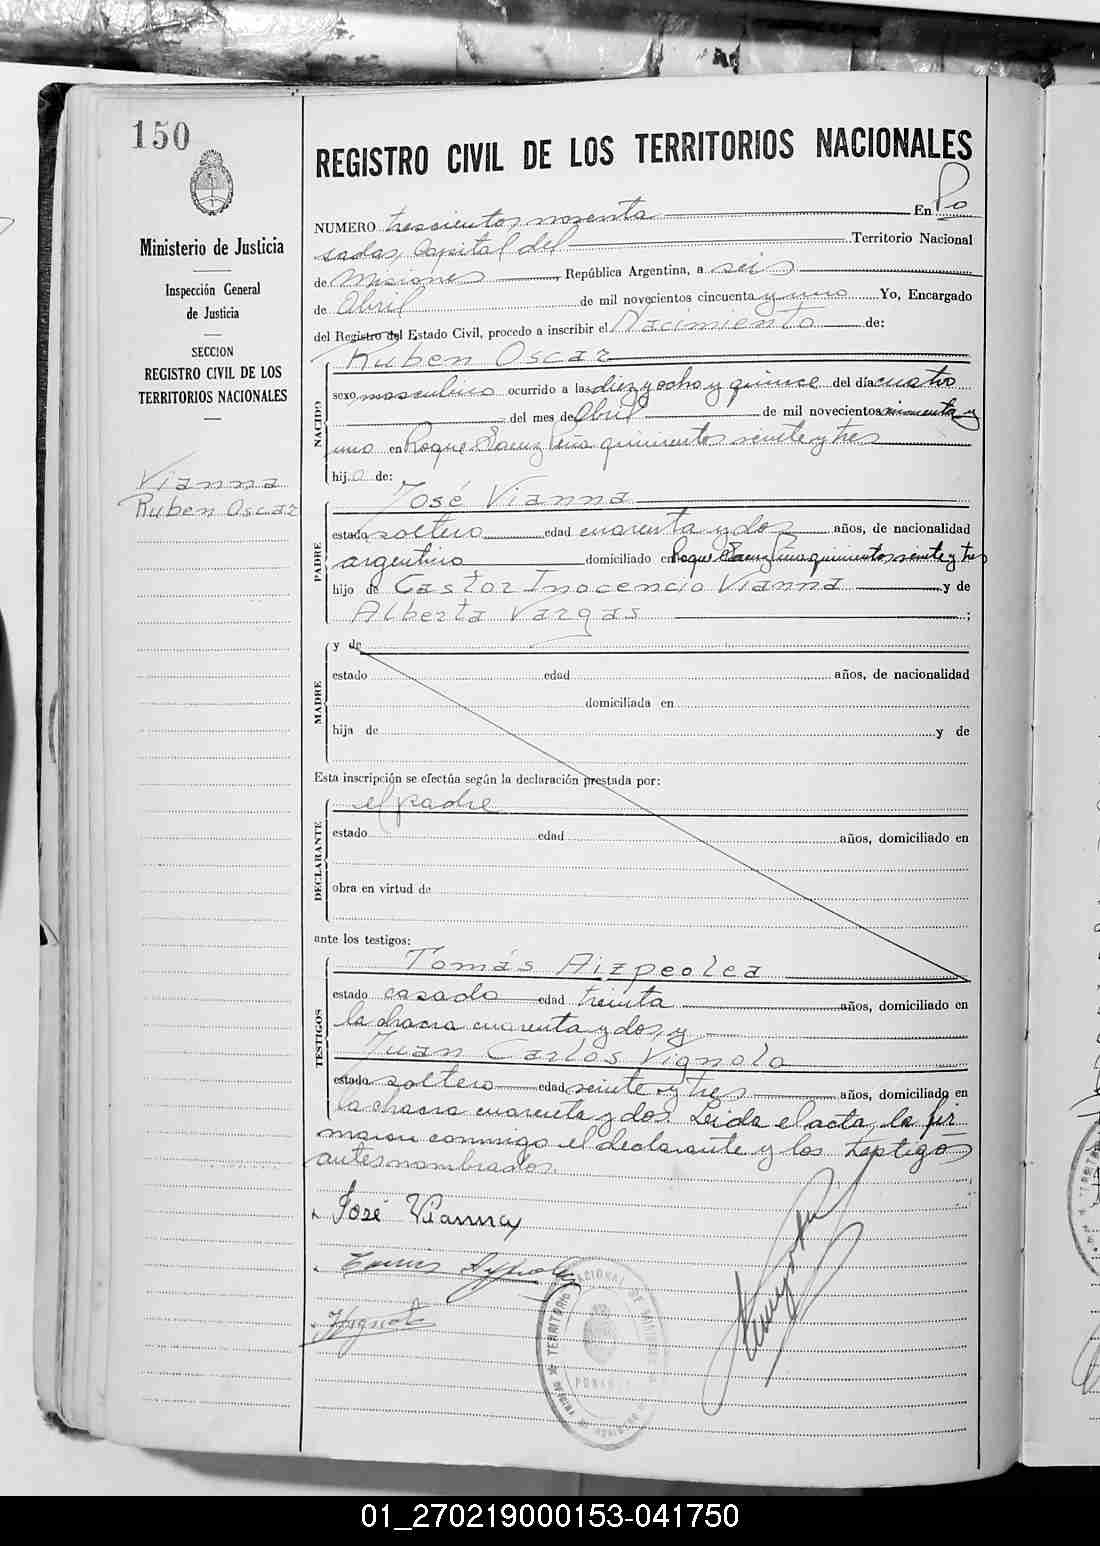 150
Ministerio de Justicia
Inspección General
de Justicia
SECCION
REGISTRO CIVIL DE LOS
TERRITORIOS NACIONALES
Vianna
Ruben Oscar
REGISTRO CIVIL DE LOS TERRITORIOS NACIONALES
NUMERO trescientos noventa En Po
sadas, Capital del Territorio Nacional
de Misiones, República Argentina, a seis
de Abril de mil novecientos cincuenta y uno Yo, Encargado
del Registro del Estado Civil, procedo a inscribir el Nacimiento de:
NACIDO
Ruben Oscar
sexo masculino ocurrido a las diez y ocho y quince del día cuatro
del mes de Abril de mil novecientos cincuenta y
uno en Roque Saenz Peña quinientos veinte y tres
hijo de:
PADRE
José Vianna
estado soltero edad cuarenta y dos años, de nacionalidad
argentino domiciliado en Roque Saenz Peña quinientos veinte y tres
hijo de Castor Inocencio Vianna y de
Alberta Vargas ;
MADRE
y de
estado edad años, de nacionalidad
domiciliada en
hija de y de
Esta inscripción se efectúa según la declaración prestada por:
DECLARANTE
el padre
estado edad años, domiciliado en
obra en virtud de
ante los testigos:
TESTIGOS
Tomás Aizpeolea
estado casado edad treinta años, domiciliado en
la chacra cuarenta y dos, y
Juan Carlos Vignolo
estado soltero edad veinte y tres años, domiciliado en
la chacra cuarenta y dos. Leida el acta, la fir
maron conmigo el declarante y los testigos
antes nombrados.
José Vianna
TERRITORIO NACIONAL DE MISIONES
01_270219000153-041750